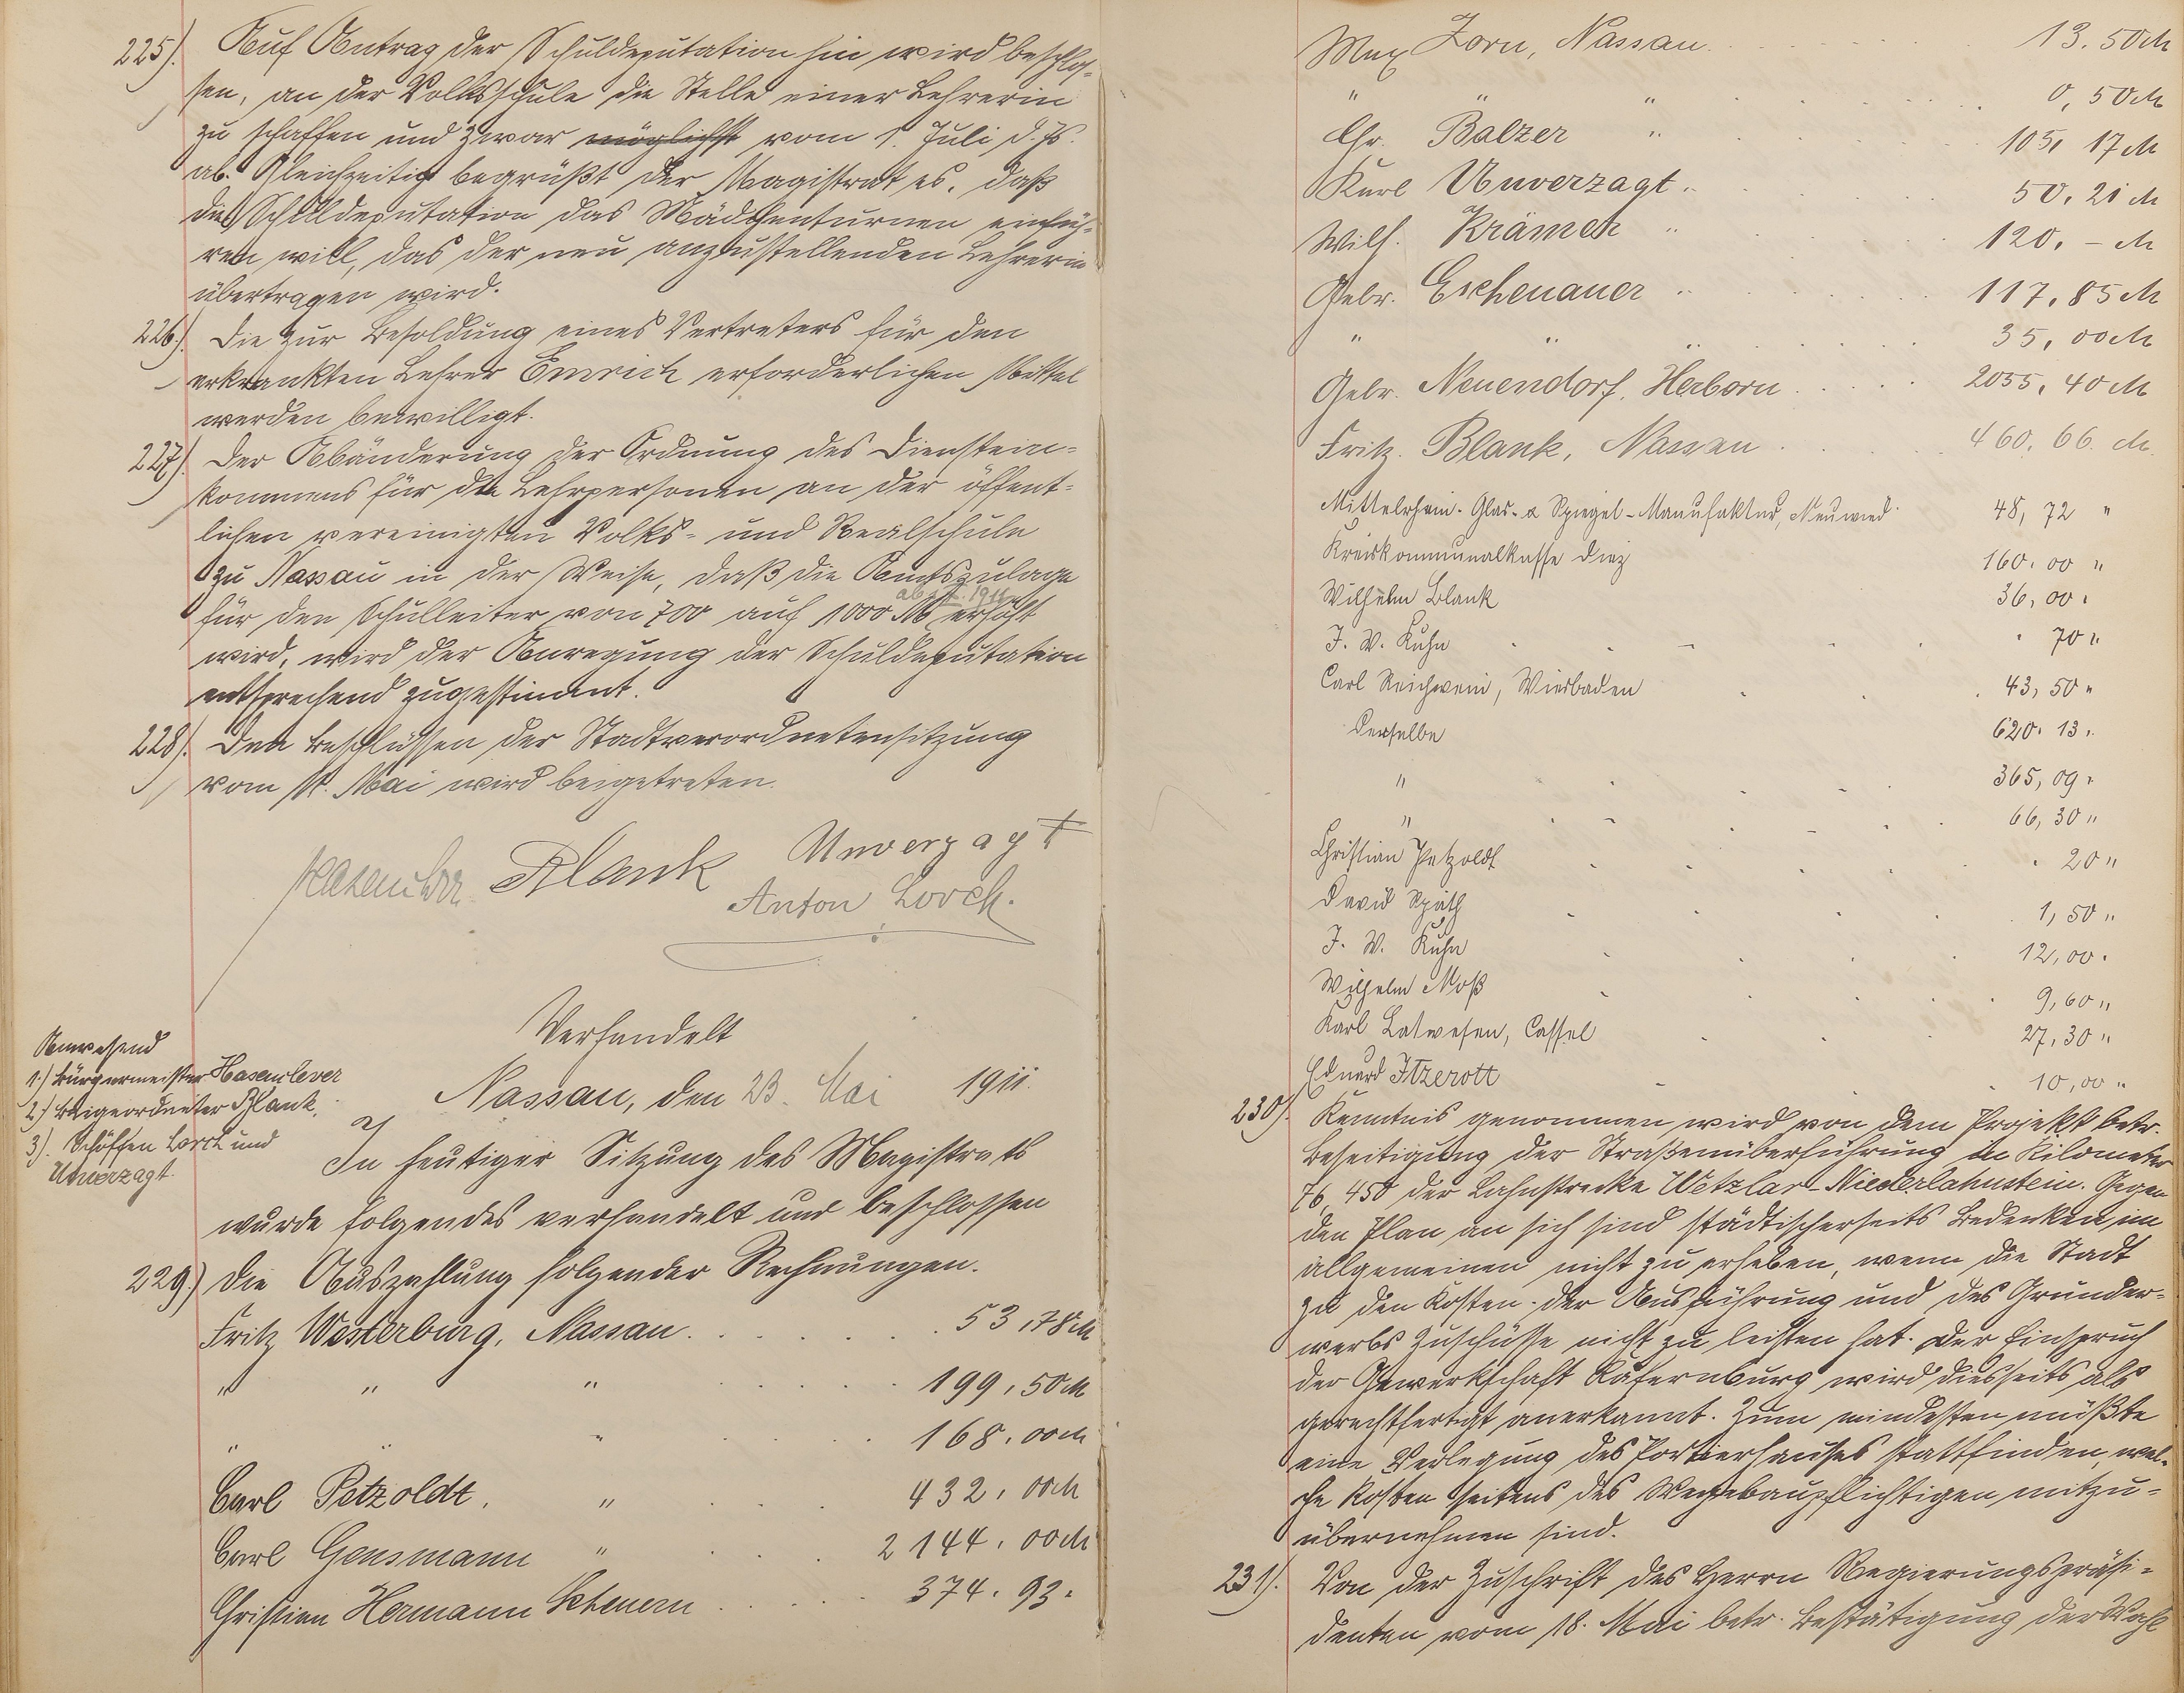 225). Auf Antrag der Schuldeputation hin wird beschlos-
sen, an der Volksschule die Stelle einer Lehrerin
zu schaffen und zwar möglichst vom 1. Juli d. Js.
ab. Gleichzeitig begrüßt der Magistrat es, daß
die Schuldeputation das Mädchenturnen einfüh-
ren will, das der neu anzustellenden Lehrerin
übertragen wird.
226). Die zur Besoldung eines Vertreters für den
erkrankten Lehrer Emrich erforderlichen Mittel
werden bewilligt.
227). Der Abänderung der Ordnung des Dienstein-
kommens für die Lehrpersonen an der öffent-
lichen vereinigten Volks- und Realschule
zu Nassau in der Weise, daß die Amtszulage
ab 1911
für den Schulleiter von 700 auf 1000 M erhöht
wird, wird der Anregung der Schuldeputation
entsprechend zugestimmt.
228). Den Beschlüssen der Stadtverordnetensitzung
vom Mai wird beigetreten.
Hasenclever Blank Unverzagt
Anton Lorch.
Verhandelt
Nassau, den 23. Mai 1911.
Anwesend
1.) Bürgermeister Hasenclever
2.) Beigeordneter Blank.
3). Schöffen Lorch und
Unverzagt.
In heutiger Sitzung des Magistrats
wurde folgendes verhandelt und beschlossen
229.) Die Auszahlung folgender Rechnungen.
Fritz Westerburg, Nassau. 53,78 M
" " " 199,50 M
" " " 168,00 M
Carl Petzoldt, " 432,00 M
Carl Gensmann " 2144,00 M
Christian Hermann Scheuern 374,93 "
Max Zorn, Nassau. 13,50 M
" " " 0,50 M
Chr. Balzer " 105,17 M
Karl Unverzagt " 50,21 M
Wilh. Krämer " 120,- M
Gebr. Eschenauer " 117,85 M
" " " 35,00 M
Gebr. Neuendorf, Herborn 2055,40 M
Fritz Blank, Nassau 460,66 M
Mittelrhein. Glas- & Spiegel-Manufaktur, Neuwied 48,72 "
Kreiskommunalkasse Diez 160,00 "
Wilhelm Blank 36,00 "
J. W. Kuhn 70 "
Carl Reichwein, Wiesbaden 43,50 "
Derselbe 620,13 "
" 365,09 "
" 66,30 "
Christian Petzoldt 20 "
David Späth 1,50 "
J. W. Kuhn 12,00 "
Wilhelm Moß 9,60 "
Karl Latwesen, Cassel 27,30 "
Eduard Itzerott 10,00 "
230). Kenntnis genommen wird von dem Projekt betr.
Beseitigung der Straßenüberführung in Kilometer
76,450 der Lahnstrecke Wetzlar-Niederlahnstein. Gegen
den Plan an sich sind städtischerseits Bedenken im
allgemeinen nicht zu erheben, wenn die Stadt
zu den Kosten der Ausführung und des Grunder-
werbs Zuschüsse nicht zu leisten hat. Der Einspruch
der Gewerkschaft Käfernburg wird diesseits als
gerechtfertigt anerkannt. Zum mindesten müßte
eine Verlegung des Portierhauses stattfinden, wel-
che Kosten seitens des Wegebaupflichtigen mitzu-
übernehmen sind.
231). Von der Zuschrift des Herrn Regierungspräsi-
denten vom 18. Mai betr. Bestätigung der Wahl